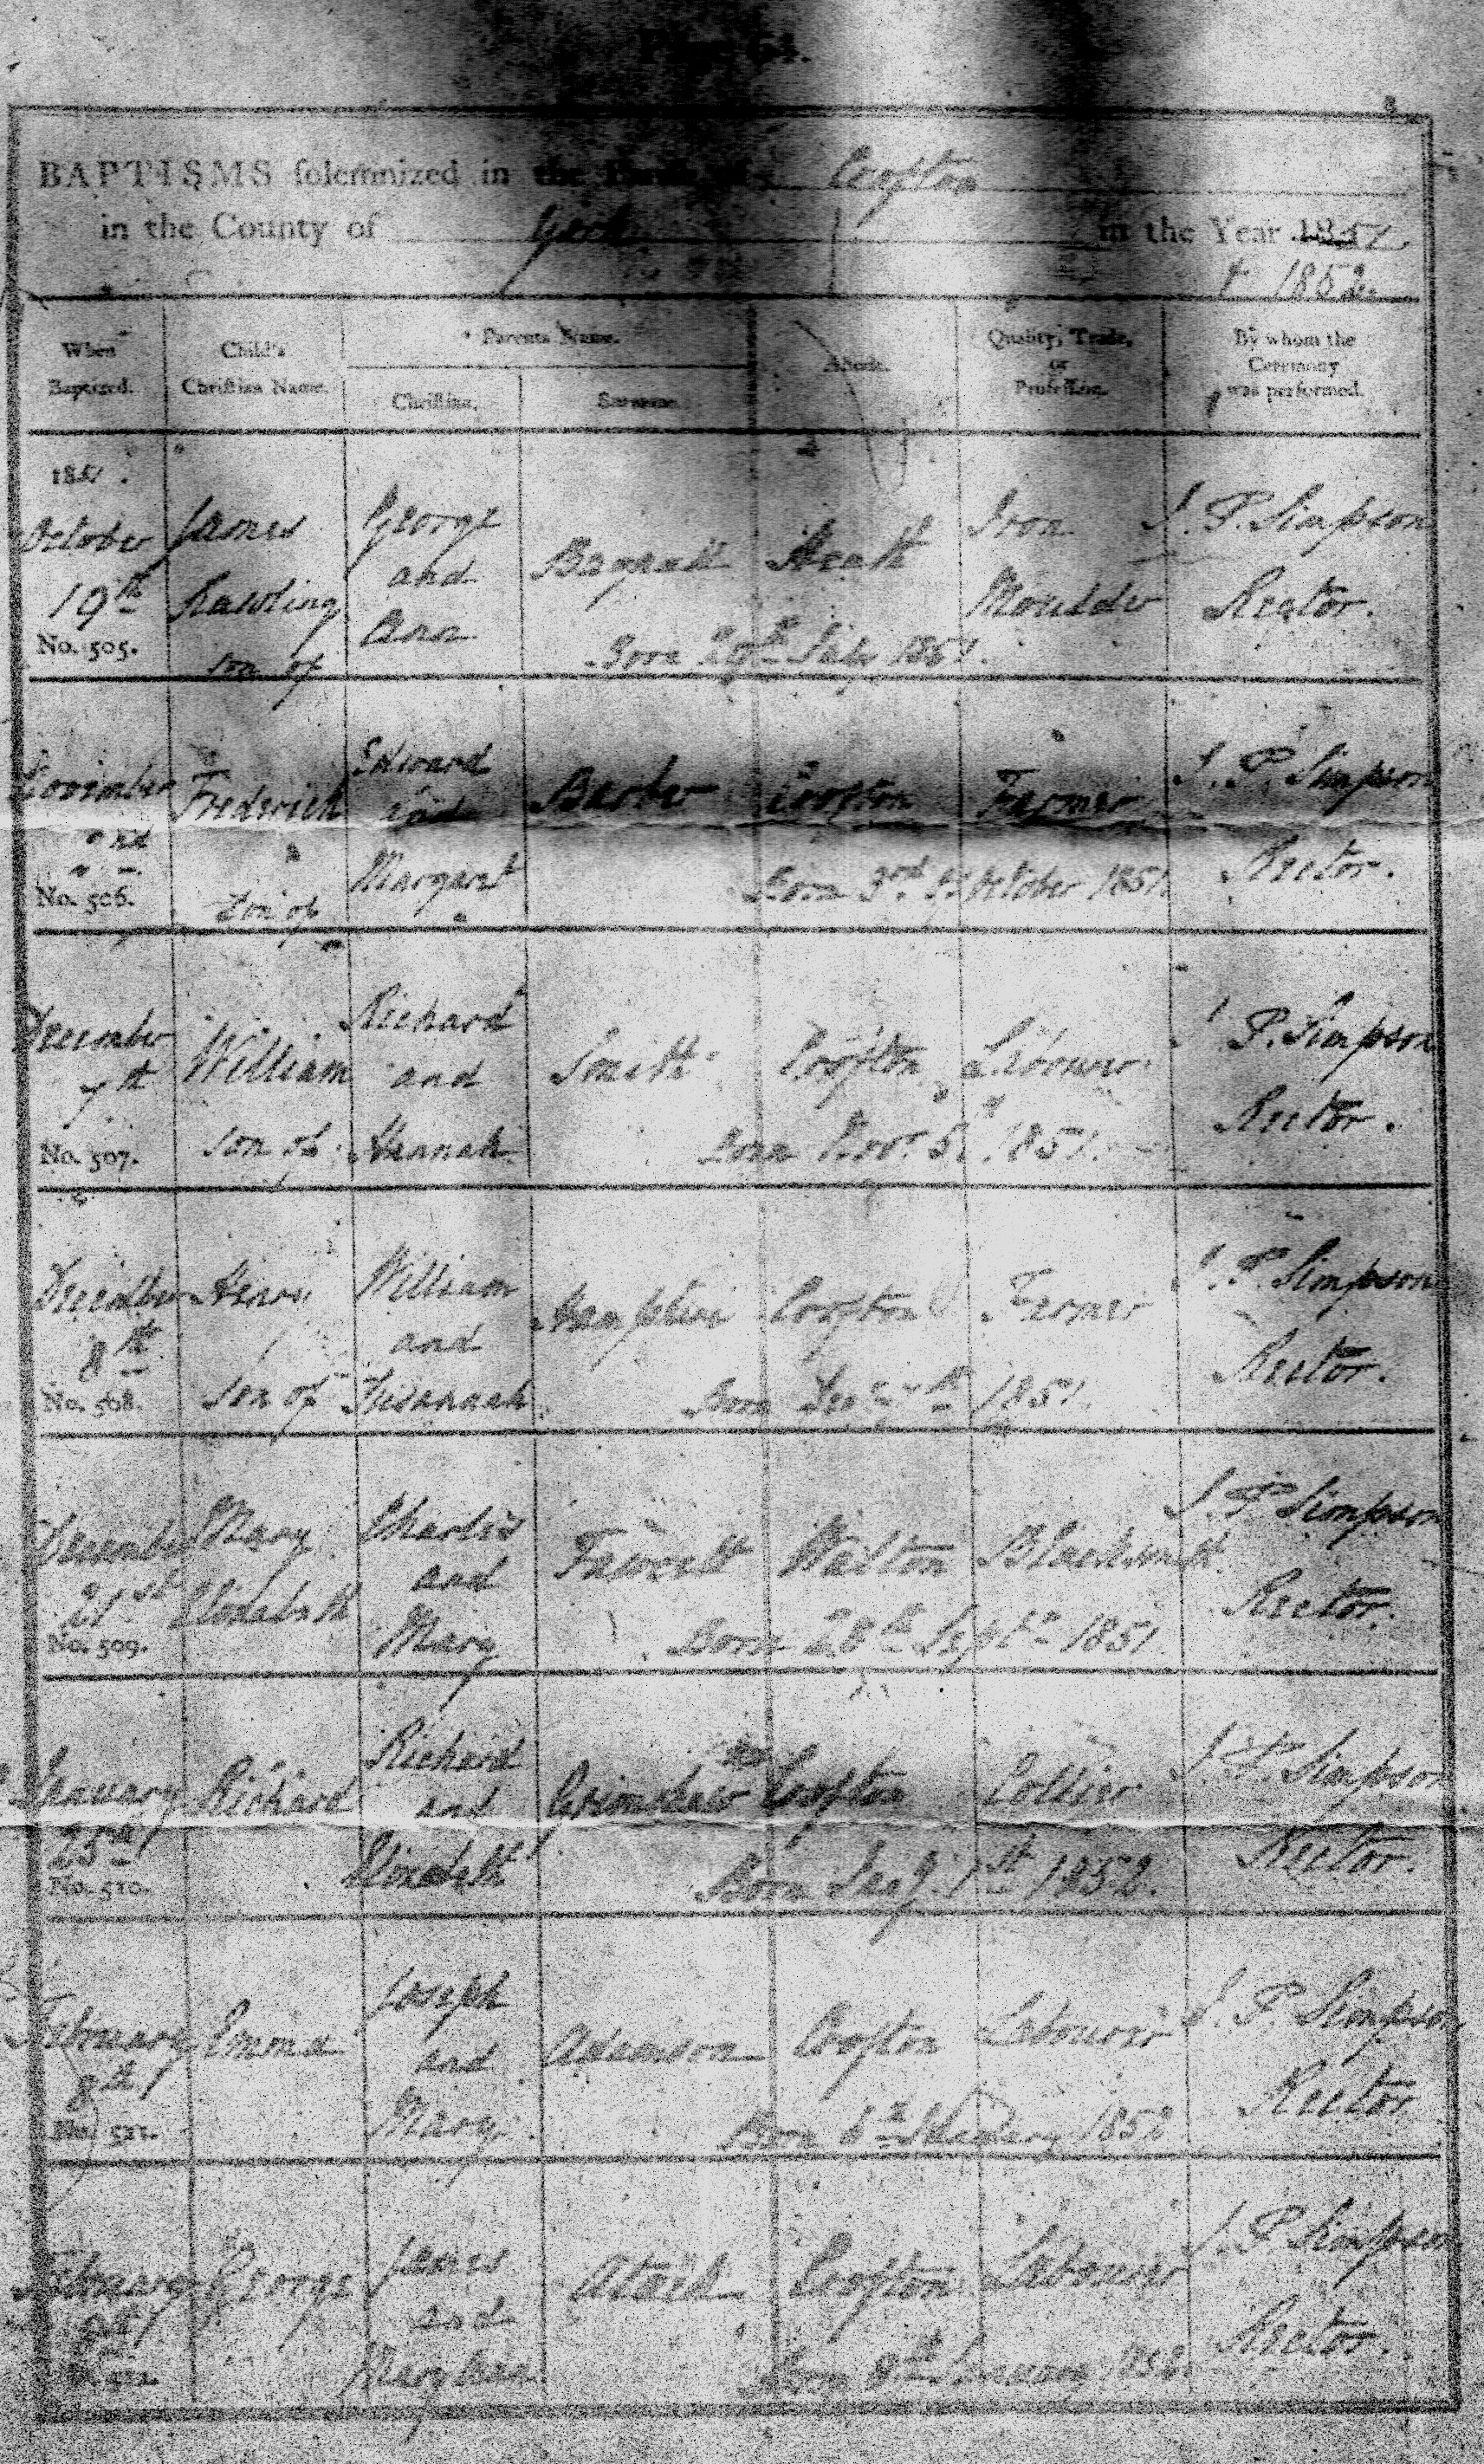 Page 64.
BAPTISMS solemnized in the Parish of Crofton
in the County of York in the Year 1851
& 1852.
When Baptized. Child's Christian Name. Parents Name. Christian. Surname. Abode. Quality, Trade, or Profession. By whom the Ceremony was performed.
1851.
October 19th James Rawling son of George and Ann Heath Iron Moulder J. P. Simpson Rector.
No. 505. Born July 1851.
November Frederick Son of Edward and Margaret Barber Crofton Farmer J. P. Simpson Rector.
No. 506. Born 3rd of October 1851.
December 7th William son of Richard and Hannah Smith Crofton Labourer J. P. Simpson Rector.
No. 507. Born Novr 5. 1851.
December 8th Henry son of William and Susannah Crofton Farmer J. P. Simpson Rector.
No. 508. Born 1851.
December 21st Mary Elizabeth Charles and Mary Fawcett Walton Blacksmith J. P. Simpson Rector.
No. 509. Born 28th Septr 1851.
January 25th Richard Richard and Elizabeth Grimshaw Crofton Collier J. P. Simpson Rector.
No. 510. Born Jany. 1st 1852.
February 8th Emma Joseph and Mary Adamson Crofton Labourer J. P. Simpson Rector
No. 511. Born 1852
February George James and Mary Ann Crofton Labourer J. P. Simpson Rector.
No. 512. Born January 1852.